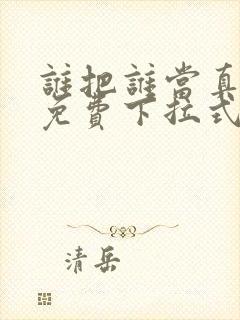 誰把誰當真
免費下拉式
清岳